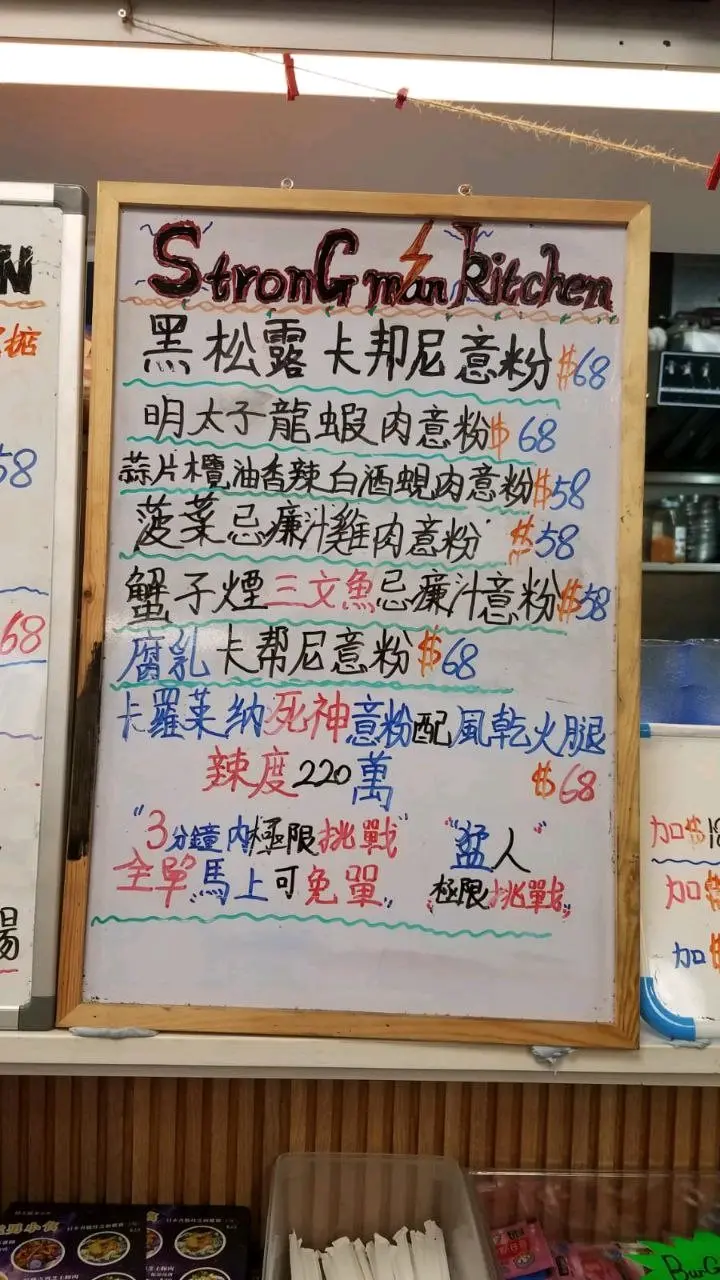 StronG man kitchen
黑松露卡邦尼意粉 $68
明太子龍蝦肉意粉 $68
蒜片欖油香辣白酒蜆肉意粉 $58
菠菜忌廉汁雞肉意粉 $58
蟹子煙三文魚忌廉汁意粉 $58
腐乳卡帮尼意粉 $68
卡羅萊納死神意粉配風乾火腿
辣度220萬 $68
"3分鐘內極限挑戰"
全單馬上可免單
"猛人"
極限挑戰
N
58
68
加$18
加$
加$
BurG